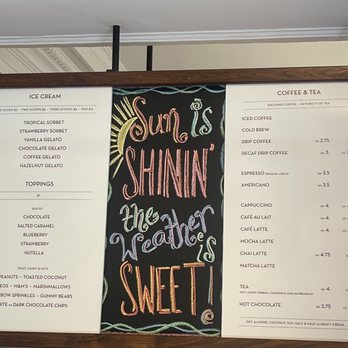 ICE CREAM
TROPICAL SORBET
STRAWBERRY SORBET
VANILLA GELATO
CHOCOLATE GELATO
COFFEE GELATO
HAZELNUT GELATO
TOPPINGS
SAUCES
CHOCOLATE
SALTED CARAMEL
BLUEBERRY
STRAWBERRY
NUTELLA
FRUIT, CANDY & NUTS
PEANUTS • TOASTED COCONUT
M&M'S • MARSHMALLOWS
SPRINKLES • GUMMY BEARS
WHITE OR DARK CHOCOLATE CHIPS
Sun is
SHININ'
the
Weather
is
SWEET!
COFFEE & TEA
ICED COFFEE
COLD BREW
DRIP COFFEE 2.75
DECAF DRIP COFFEE 3.
ESPRESSO 3.5
AMERICANO 3.5
CAPPUCCINO 4.
CAFÉ AU LAIT 4.
CAFÉ LATTE 4.
MOCHA LATTE
CHAI LATTE 4.75
MATCHA LATTE
TEA 4.
HOT CHOCOLATE 3.75